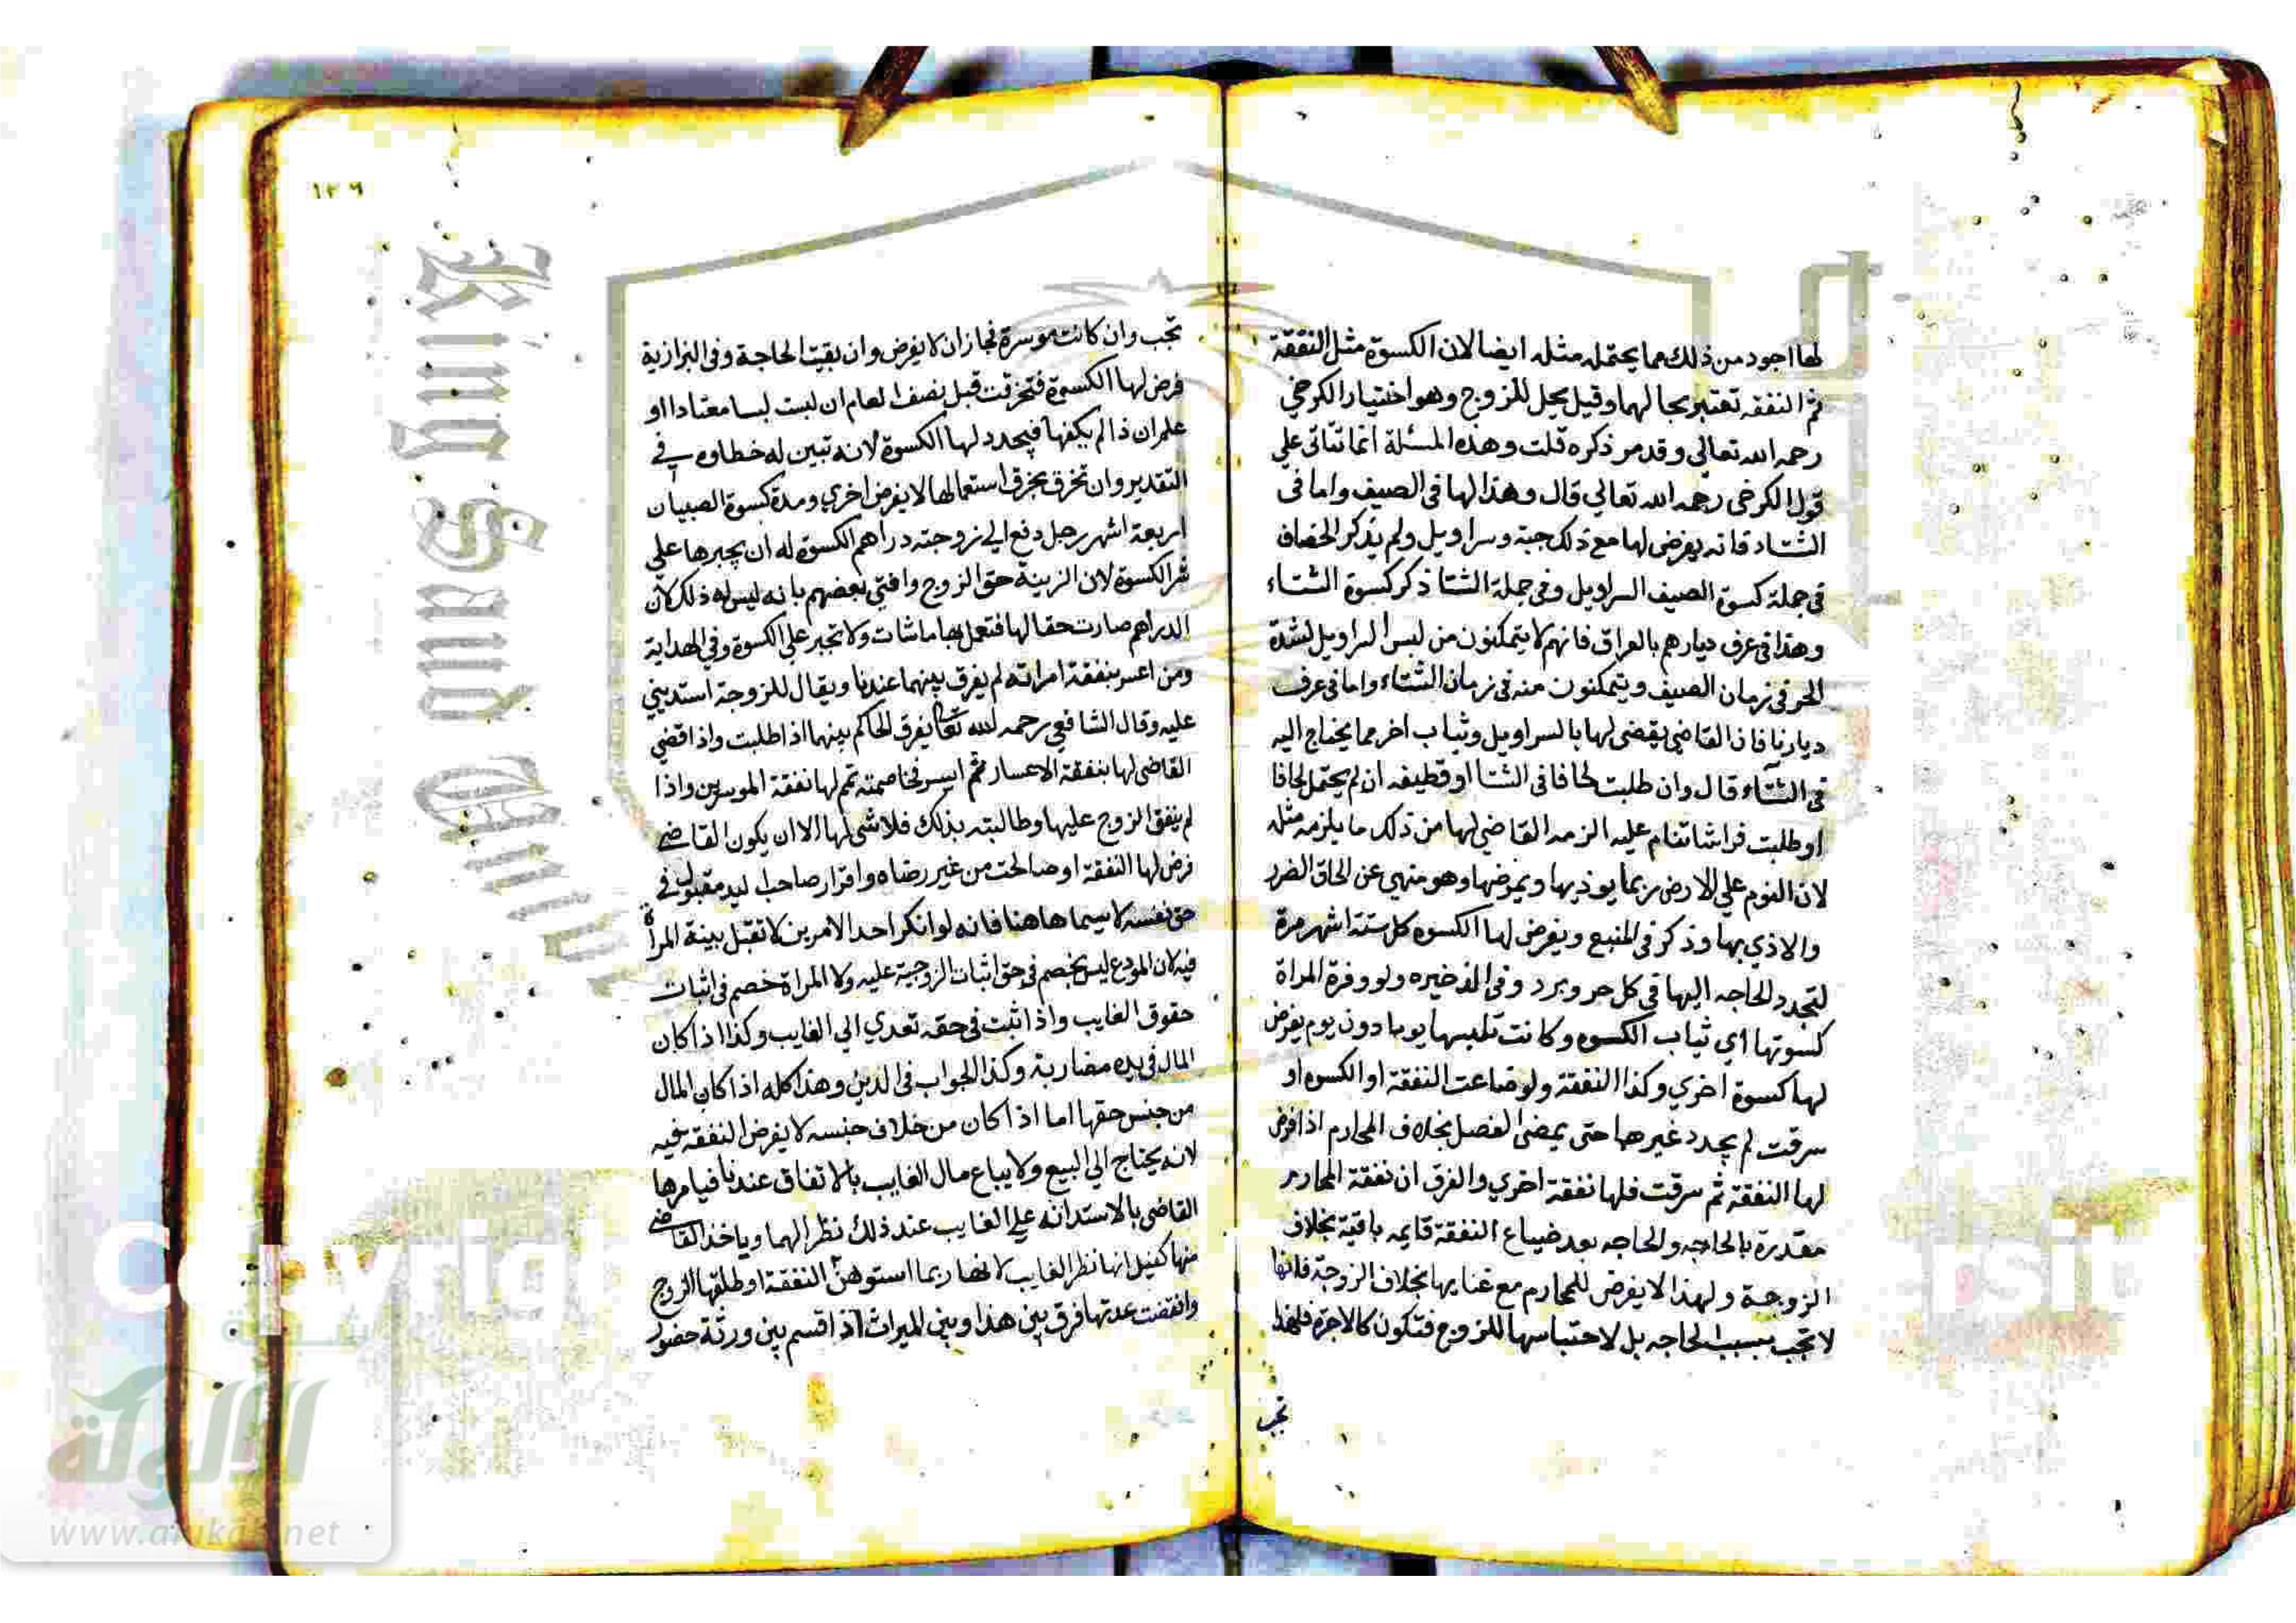 لها اجود من ذلك مما يحتمله مثله ايضا لان الكسوة مثل النفقة
ثم النفقه تعتبر بحالهما وقيل بحل للزوج وهو اختيار الكرخي
رحمه الله تعالى وقد مر ذكره قلت وهذه المسئلة انما تتاتى علي
قول الكرخى رحمه الله تعالي قال وهذا لها في الصيف واما فى
الشتاء فانه يفرض لها مع ذلك جبة وسراويل ولم يذكر الخصاف
فى جملة كسوة الصيف السراويل وفى جملة الشتا ذكر كسوة الشتاء
وهذا فى عرف ديارهم بالعراق فانهم لا يتمكنون من لبس السراويل لشدة
الحر فى زمان الصيف ويتمكنون منه فى زمان الشتاء واما فى عرف
ديارنا فان القاضي يقضى لها بالسراويل وثياب اخر مما يحتاج اليه
فى الشتاء قال وان طلبت لحافا فى الشتا او قطيفه ان لم يحتمل لحافا
او طلبت فراشا تنام عليه الزمه القاضي لها من ذلك ما يلزمه مثله
لان النوم علي الارض ربما يوذيها ويمرضها وهو منهي عن الحاق الضرر
والاذي بها وذكر فى المنبع ويفرض لها الكسوه كل ستة اشهر مرة
لتجدد الحاجه اليها في كل حر وبرد وفى الذخيره ولو وفرة المراة
كسوتها اي ثياب الكسوه وكانت تلبسها يوما دون يوم يفرض
لها كسوة اخري وكذا النفقة ولو ضاعت النفقة او الكسوه او
سرقت لم يجدد غيرها حتى يمضي الفصل بخلاف المحارم اذا فرض
لها النفقة ثم سرقت فلها نفقة اخري والفرق ان نفقة المحارم
مقدرة بالحاجه والحاجه بعد ضياع النفقة قايمه باقية بخلاف
الزوجة ولهذا لا يفرض للمحارم مع غنايها بخلاف الزوجة فانها
لا تجب بسبب الحاجه بل لاحتباسها للزوج فتكون كالاجرة فلهذا
تجب
١٢٦
تجب وان كانت موسرة فجاز ان لا يفرض وان بقيت الحاجة وفى البزازية
فرض لها الكسوة فتخرقت قبل نصف العام ان لبست لبسا معتادا او
علم ان ذا لم يكفها فيجدد لها الكسوة لانه تبين له خطاوه في
التقدير وان تخرق بخرق استعمالها لا يفرض اخري ومدة كسوة الصبيان
اربعة اشهر رجل دفع الي زوجته دراهم الكسوة له ان يجبرها على
شر الكسوة لان الزينة حق الزوج وافتي بعضهم بانه ليس له ذلك لان
الدراهم صارت حقا لها فتعل بها ما شات ولا تجبر علي الكسوة وفي الهداية
ومن اعسر بنفقة امراته لم يفرق بينهما عندنا ويقال للزوجة استديني
عليه وقال الشافعي رحمه الله تعا يفرق الحاكم بينهما اذا طلبت واذا قضي
القاضى لها بنفقة الاعسار ثم ايسر فخاصمته تمم لها نفقة الموسرين واذا
لم ينفق الزوج عليها وطالبته بذلك فلا شى لها الا ان يكون القاضي
فرض لها النفقة او صالحت من غير رضاه واقرار صاحب اليد مقبول في
حق نفسه لا سيما هاهنا فانه لو انكر احد الامرين لا تقبل بينة المراة
فيه لان المودع ليس بخصم فى حق اثبات الزوجية عليه ولا المراة خصم فى اثبات
حقوق الغايب واذا ثبت فى حقه تعدي الي الغايب وكذا اذا كان
المال فى يده مضاربة وكذا الجواب فى الدين وهذا كله اذا كان المال
من جنس حقها اما اذا كان من خلاف جنسه لا يفرض النفقه فيه
لانه يحتاج الي البيع ولا يباع مال الغايب بالاتفاق عندنا فيامرها
القاضى بالاستدانه على الغايب عند ذلك نظرا لهما وياخذ القاضي
منها كفيل انها نظر الغايب لانها ربما استوهن النفقة او طلقها الزوج
وانقضت عدتها فرق بين هذا وبين الميراث اذا قسم بين ورثة حضور
King Saud Univ
Copyrig
rsit
شبكة
الألوكة
www.alukah.net